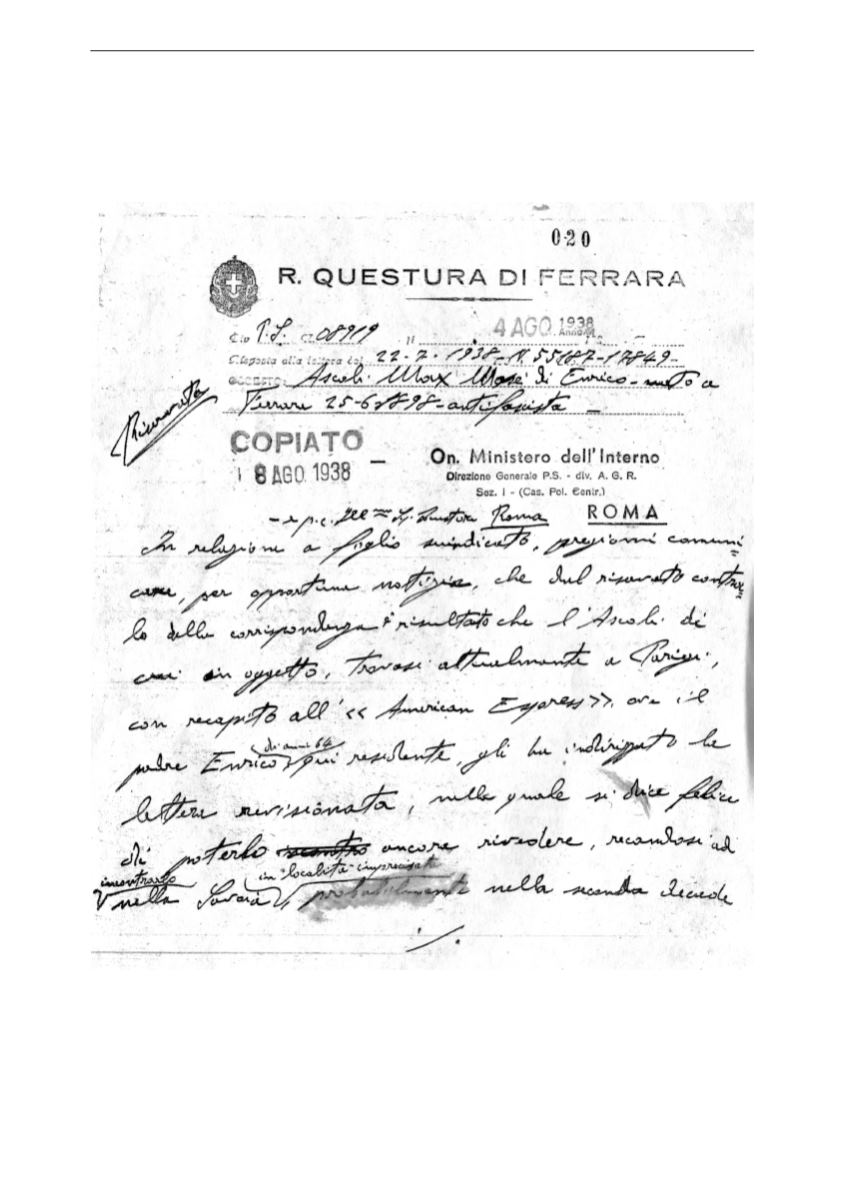 020
R. QUESTURA DI FERRARA
P.S. 08919 4 AGO 1938
Risposta alla lettera del 22-7-1938-N. 55187-17849-
OGGETTO: Ascoli Max Mosè di Enrico - nato a
Ferrara 25-6-1898 - antifascista -
Riservata
COPIATO
8 AGO. 1938
On. Ministero dell'Interno
Direzione Generale P.S. - div. A. G. R.
Sez. I - (Cas. Pol. Centr.)
ROMA
- e p.c. Roma
In relazione a foglio suindicato, pregiomi comuni
care, per opportuna notizia, che dal riservato contro
lo della corrispondenza è risultato che l'Ascoli di
cui in oggetto, trovasi attualmente a Parigi,
con recapito all' << American Express >>, ove il
padre Enrico, di anni 64 qui residente, gli ha indirizzato la
lettera revisionata, nella quale si dice felice
di poterlo ancora rivedere, recandosi ad
incontrarlo
nella Savoia in località imprecisata probabilmente nella seconda decade
./.